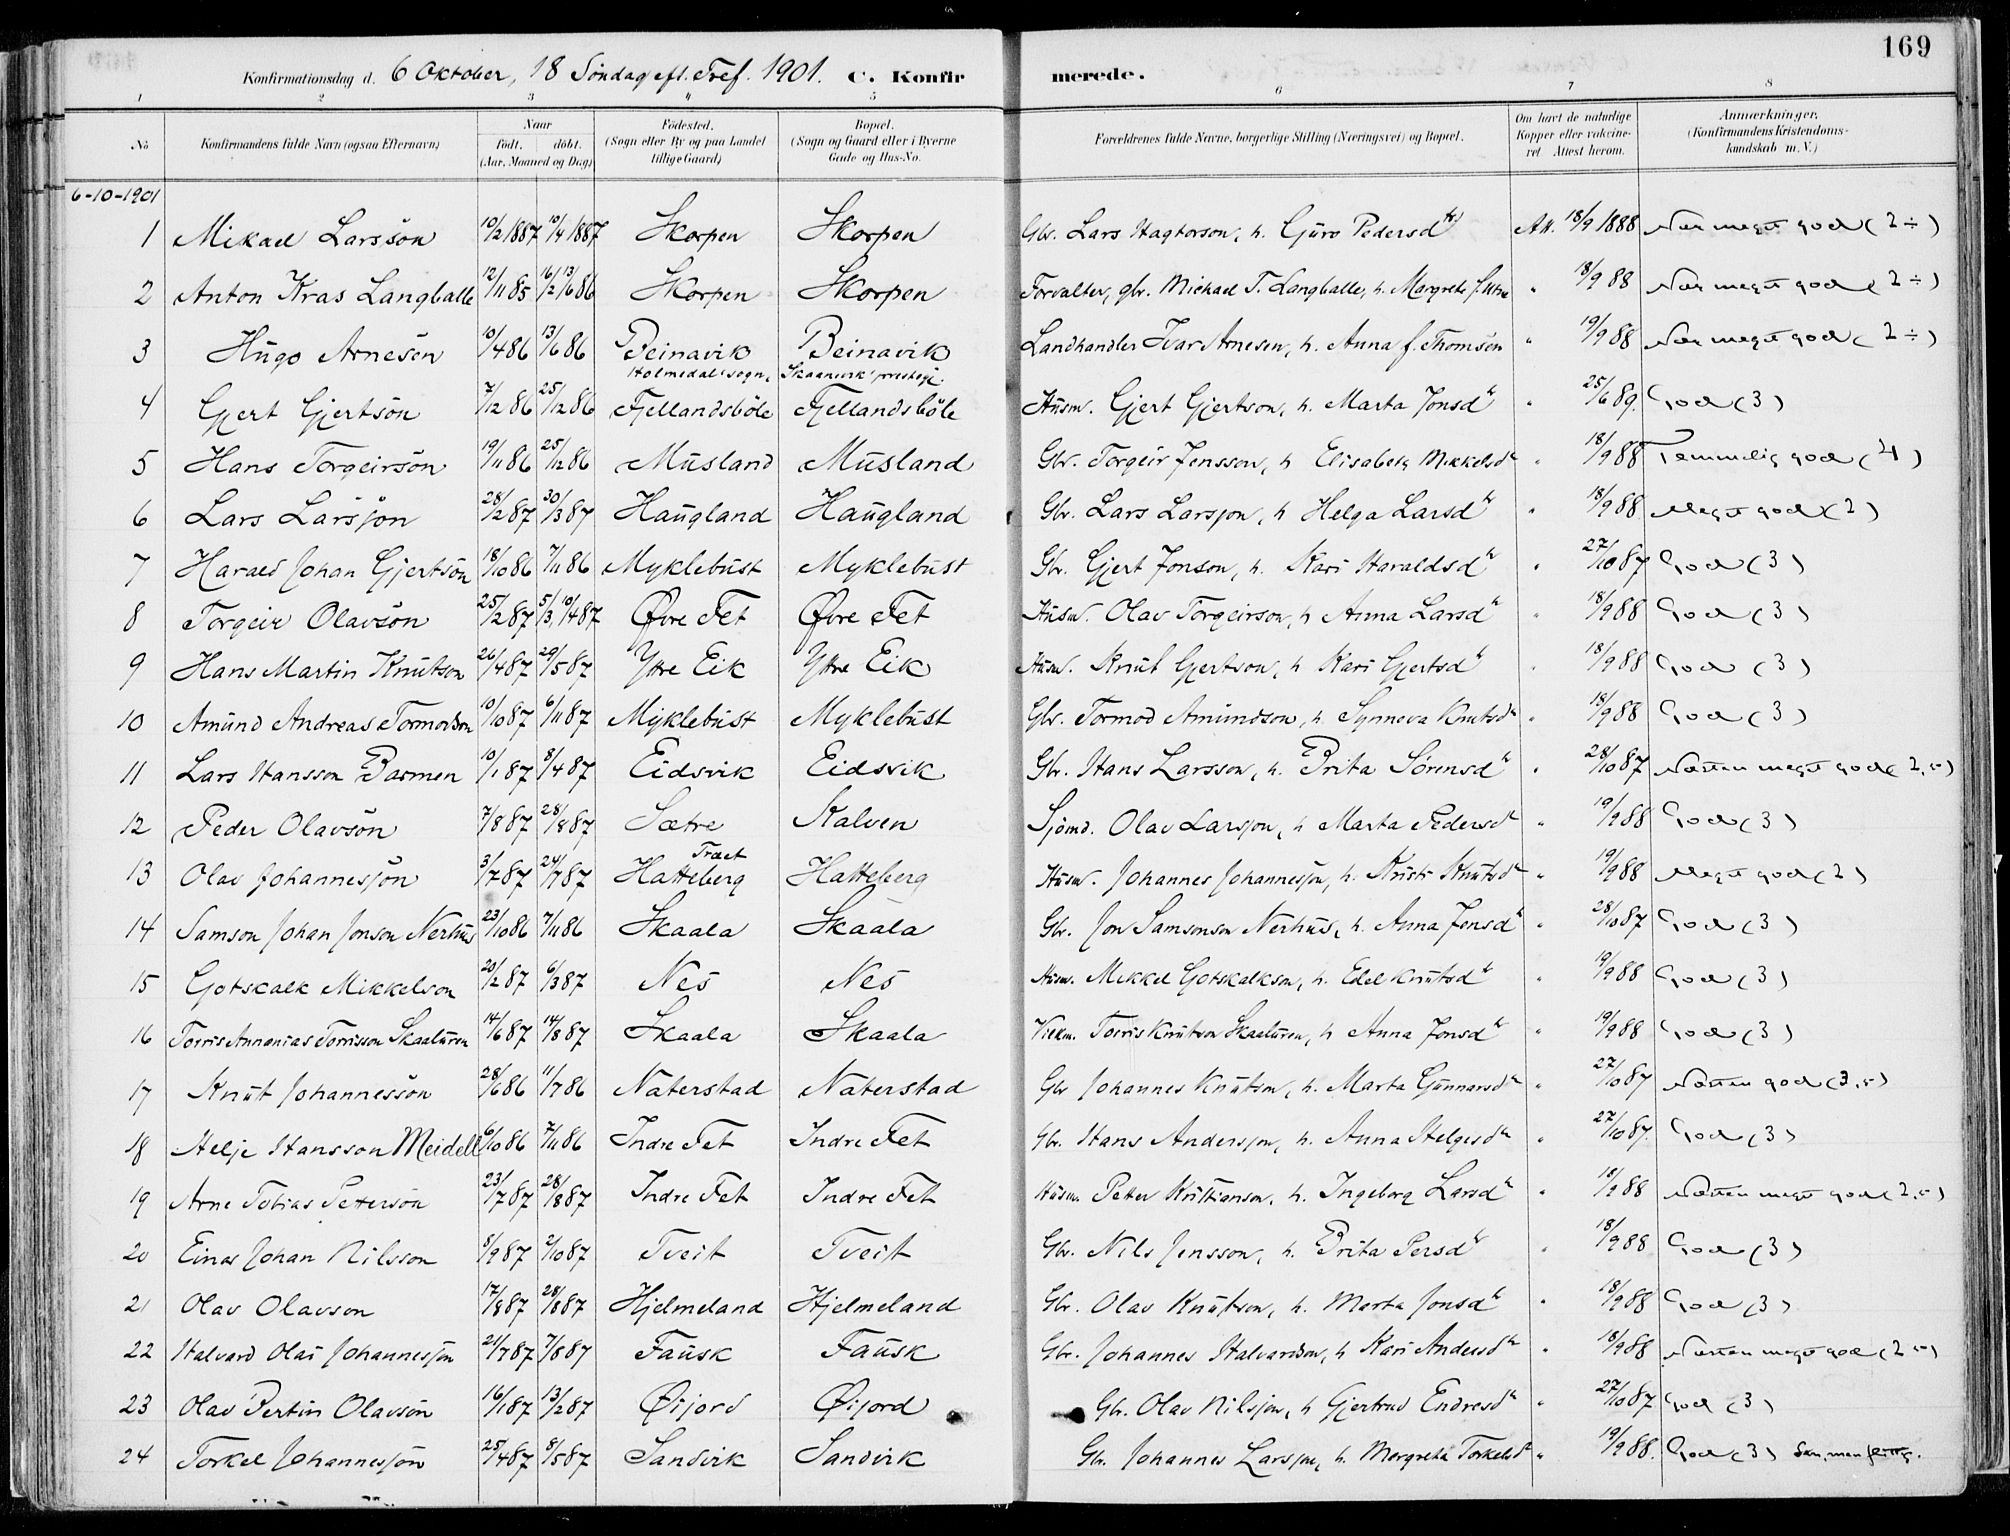 169
Konfirmationsdag d. 6 Oktober, 18 Söndag eft. Tref. 1901. C. Konfirmerede.
1 2 3 4 5 6 7 8
No. Konfirmandens fulde Navn (ogsaa Efternavn) Naar født. døbt. (Aar, Maaned og Dag) Fødested. (Sogn eller By og paa Landet tillige Gaard) Bopæl. (Sogn og Gaard eller i Byerne Gade og Hus-No. Forældrenes fulde Navne, borgerlige Stilling (Næringsvei) og Bopæl. Om havt de naturlige Kopper eller vaccineret. Attest herom. Anmærkninger. (Konfirmandens Kristendomskundskab m. V.)
6-10-1901
1 Mikael Larssön 10/2 1887 10/4 1887 Skorpen Skorpen Gbr. Lars Hagtorson, h. Guro Pedersdtr Att. 18/9 1888 Nær meget god (2÷)
2 Anton Kras Langballe 12/11 85 16/2 13/6 86 Skorpen Skorpen Forvalter, gbr. Michael T. Langballe, h. Margrete f. " 18/9 88 Nær meget god (2÷)
3 Hugo Arnesen 10/4 86 13/6 86 Beinavik Beinavik Landhandler Ivar Arnesen, h. Anna f. Thomsen " 19/9 88 Nær meget god (2÷)
Holmedal sogn, Skaanevik prestegj.
4 Gjert Gjertsön 7/12 86 25/12 86 Fjellandsböle Fjellandsböle Husm. Gjert Gjertson, h. Marta Jonsdtr " 25/6 89. God (3)
5 Hans Torgeirsön 19/11 86 25/12 86 Musland Musland Gbr. Torgeir Jensson, h Elisabeth Mikkelsdtr " 18/9 88 Temmelig god (4)
6 Lars Larsson 28/2 87 30/3 87 Haugland Haugland Gbr. Lars Larsson, h Helga Larsdtr " 18/9 88 Meget god (2)
7 Harald Johan Gjertsön 18/10 86 7/11 86 Myklebust Myklebust Gbr. Gjert Jonson, h. Kari Haraldsdtr " 27/10 87 God (3)
8 Torgeir Olavsön 25/2 87 5/3, 10/4 87 Øvre Fet Øvre Fet Husm. Olav Torgeirson, h Anna Larsdtr " 18/9 88 God (3)
9 Hans Martin Knutson 26/4 87 29/5 87 Ytre Eik Ytre Eik Husm. Knut Gjertson, h Kari Gjertsdtr " 18/9 88 God (3)
10 Amund Andreas Tormodson 10/10 87 6/11 87 Myklebust Myklebust Gbr. Tormod Amundson, h. Synneva Knutsdtr " 18/9 88 God (3)
11 Lars Hansson Barmen 10/1 87 8/4 87 Eidsvik Eidsvik Gbr. Hans Larsson, h. Brita Sørensdtr " 28/10 87 Næsten meget god (2,5)
12 Peder Olavsön 7/8 87 28/8 87 Sætre Kalven Sjömd. Olav Larsson, h Marta Pedersdtr " 19/9 88 God (3)
13 Olav Johannesson 3/7 87 24/7 87 Træet Hatteberg Hatteberg Husm. Johannes Johannesson, h. Kristi Knutsdtr " 19/9 88 Meget god (2)
14 Samson Johan Jonson Nerhus 23/10 86 7/11 86 Skaala Skaala Gbr. Jon Samsonson Nerhus, h. Anna Jensdtr " 28/10 87 God (3)
15 Gotskalk Mikkelson 20/2 87 6/3 87 Nes Nes Husm. Mikkel Gotskalkson, h. Edel Knutsdtr " 19/9 88 God (3)
16 Torris Annanias Torrisson Skaaluren 14/6 87 14/8 87 Skaala Skaala Virkm. Torris Knutson Skaaluren, h Anna Jonsdtr " 19/9 88 God (3)
17 Knut Johannesson 28/6 86 11/7 86 Naterstad Naterstad Gbr Johannes Knutson, h. Marta Gunnarsdtr " 27/10 87 Næsten god (3,5)
18 Helje Hansson Meidell 6/10 86 7/11 86 Indre Fet Indre Fet Gbr. Hans Andersson, h. Anna Helgesdtr " 27/10 87. God (3)
19 Arne Tobias Petterson 23/7 87 28/8 87 Indre Fet Indre Fet Husm Petter Kristianson, h. Ingeborg Larsdtr " 18/9 88 Næsten meget god (2,5)
20 Einar Johan Nilsson 8/9 87 2/10 87 Tveit Tveit Gbr. Nils Jensson, h. Brita Persdtr " 18/9 88 God (3)
21 Olav Olavson 17/8 87 28/8 87 Hjelmeland Hjelmeland Gbr. Olav Knutson, h. Marta Jonsdtr " 18/9 88 God (3)
22 Halvard Olai Johannesson 21/7 87 7/8 87 Fausk Fausk Gbr. Johannes Halvardson, h Kari Andersdtr " 18/9 88 Næsten meget god (2,5)
23 Olav Bertin Olavson 16/1 87 13/2 87 Øijord Øijord Gbr. Olav Nilsson, h Gjertrud Endresdtr " 27/10 87 God (3)
24 Torkel Johannesson 25/4 87 8/5 87 Sandvik Sandvik Gbr. Johannes Larsson, h. Margreta Torkelsdtr " 19/9 88. God (3) Sen, men flittig.